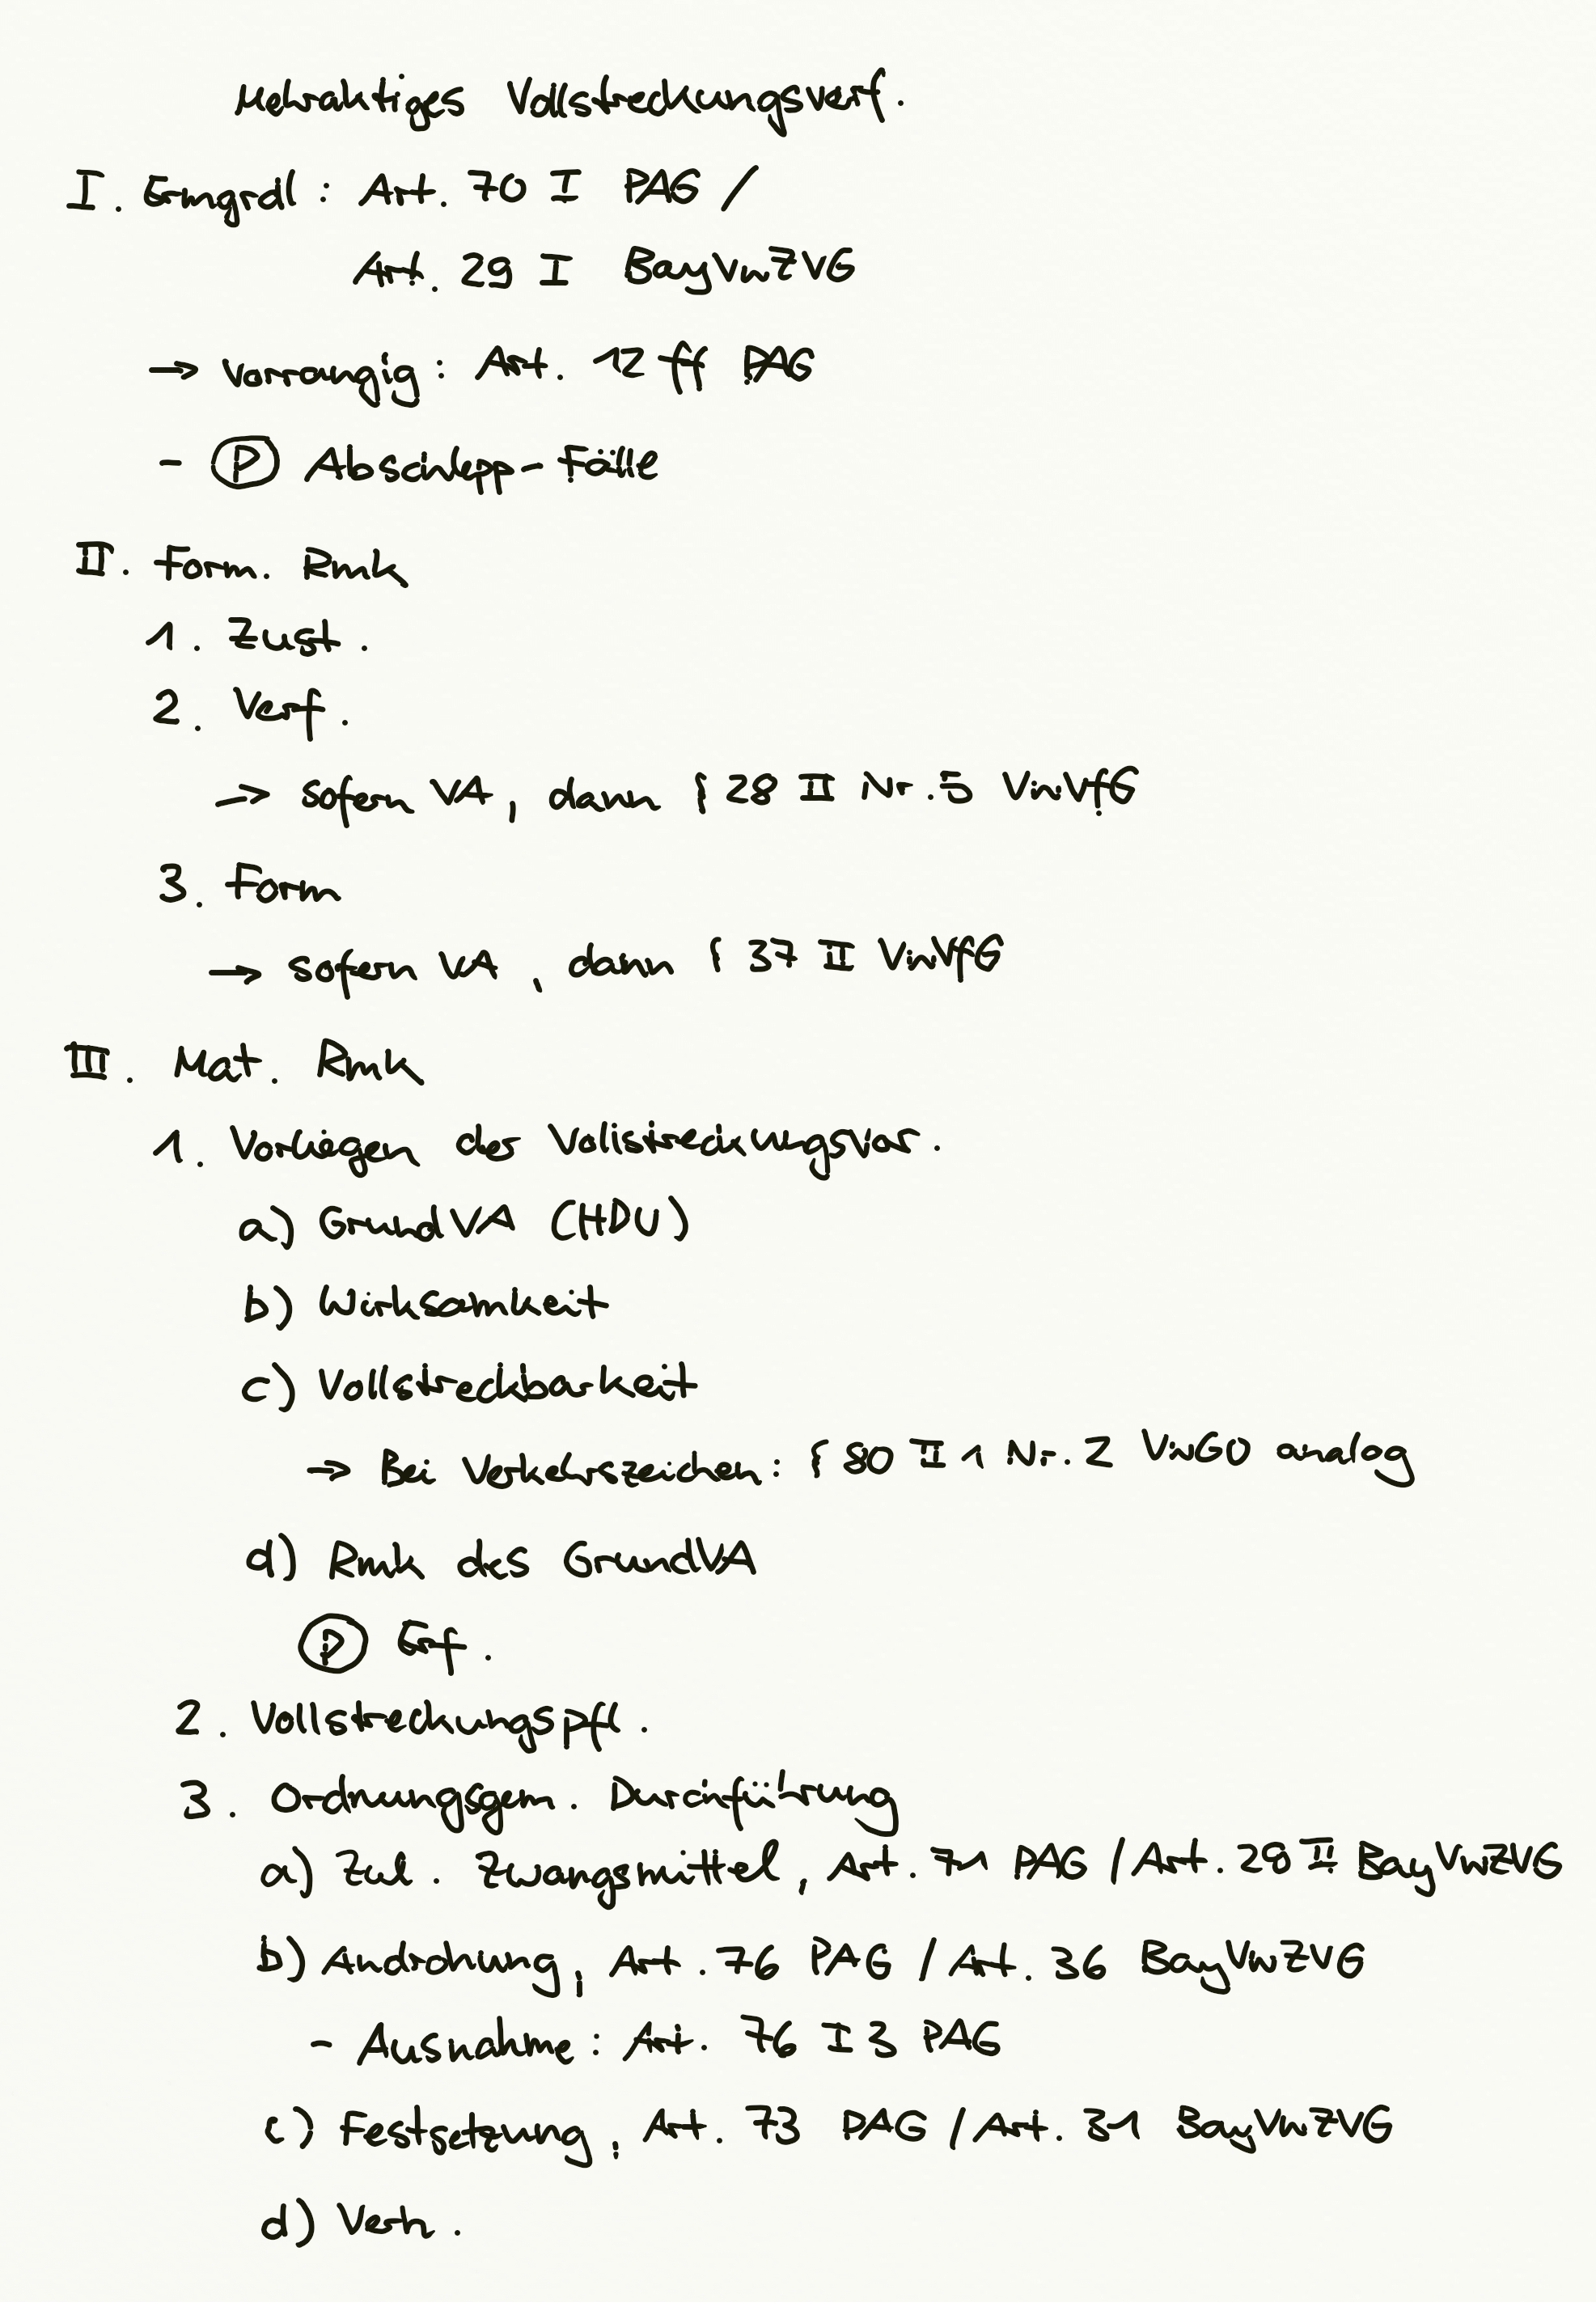 Mehraktiges Vollstreckungsverf.
I. Ermgrdl: Art. 70 I PAG /
Art. 29 I BayVwZVG
→ Vorrangig: Art. 12 ff PAG
- Ⓟ Abschlepp-Fälle
II. Form. Rmk
1. Zust.
2. Verf.
→ sofern VA, dann § 28 II Nr. 5 VwVfG
3. Form
→ sofern VA, dann § 37 II VwVfG
III. Mat. Rmk
1. Vorliegen der Vollstreckungsvor.
a) GrundVA (HDU)
b) Wirksamkeit
c) Vollstreckbarkeit
→ Bei Verkehrszeichen: § 80 II 1 Nr. 2 VwGO analog
d) Rmk des GrundVA
Ⓟ Erf.
2. Vollstreckungspfl.
3. Ordnungsgem. Durchführung
a) Zul. Zwangsmittel, Art. 71 PAG / Art. 29 II BayVwZVG
b) Androhung, Art. 76 PAG / Art. 36 BayVwZVG
- Ausnahme: Art. 76 I 3 PAG
c) Festsetzung, Art. 73 PAG / Art. 31 BayVwZVG
d) Verh.